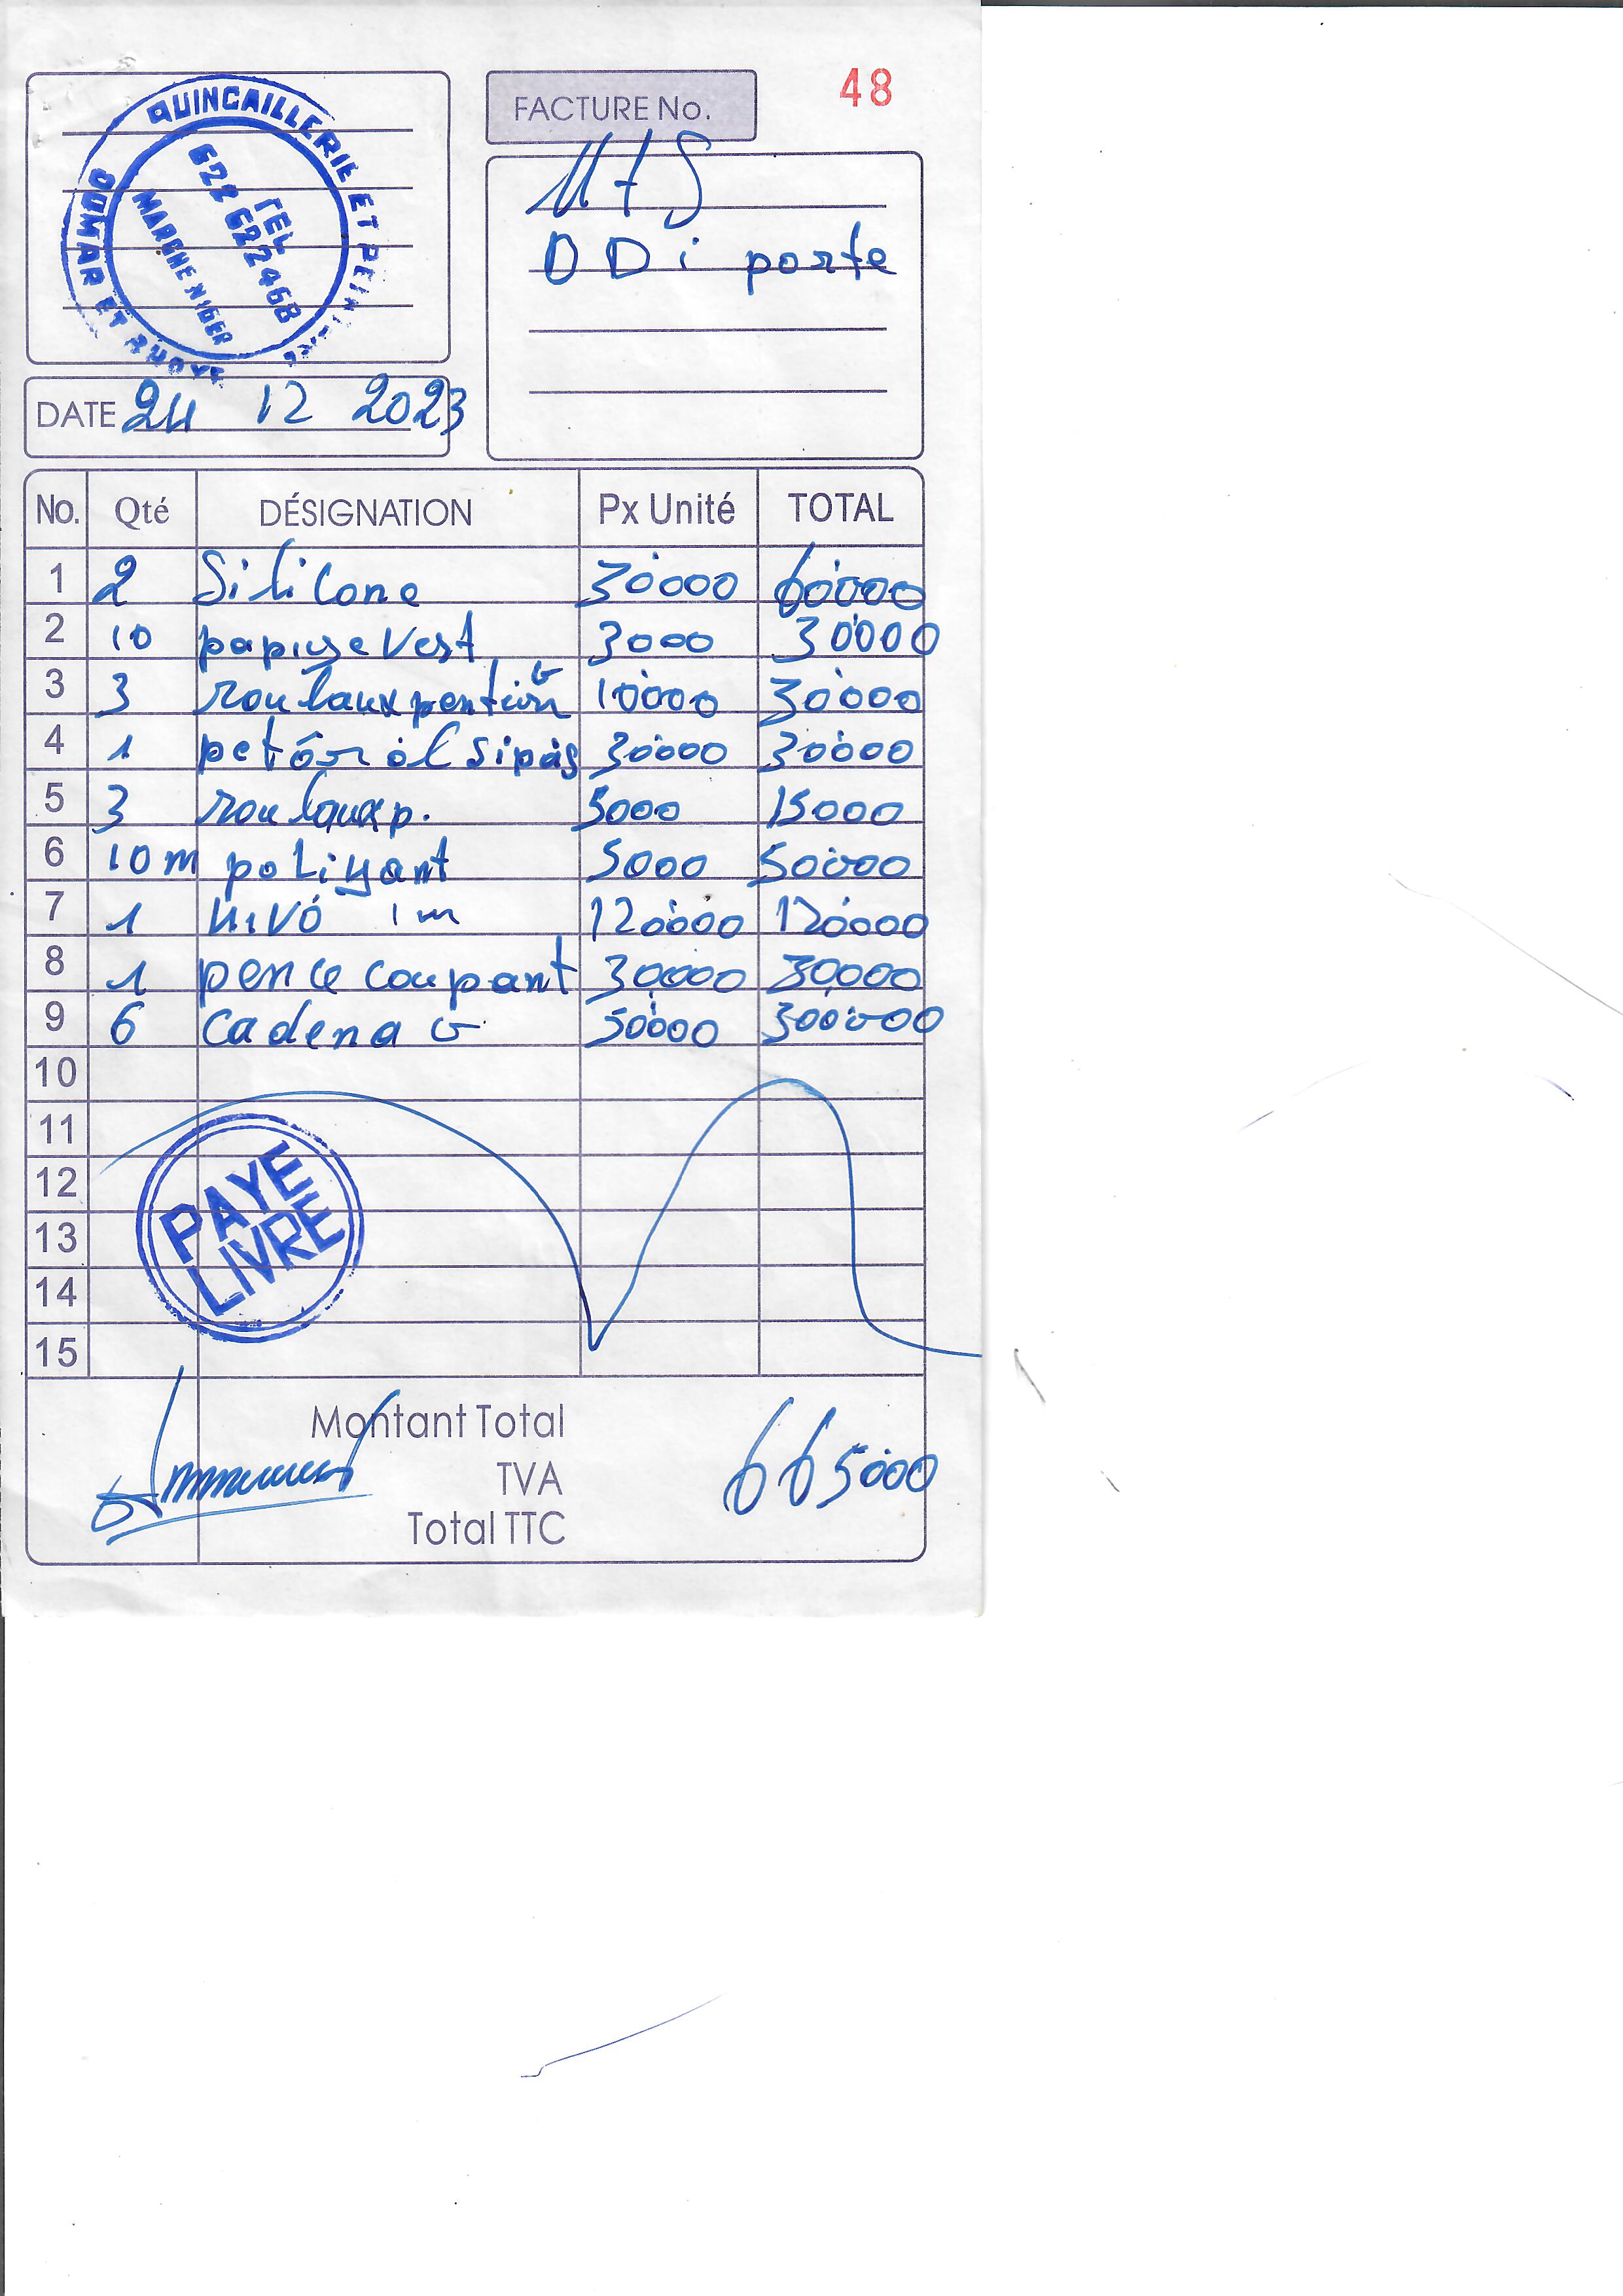 QUINCAILLERIE ET PEINTURE
OUMAR ET
TEL
622 622468
MARCHE NIGER
FACTURE No. 48
MTS
ODi porte
DATE 24 12 2023
No. Qté DÉSIGNATION Px Unité TOTAL
1 2 Silicone 30000 60000
2 10 papiye Vert 3000 30000
3 3 roulaux G 10000 30000
4 1 30000 30000
5 3 roulaux p. 5000 15000
6 10m poliyant 5000 50000
7 1 nivó 1m 120000 120000
8 1 pence coupant 30000 30000
9 6 cadena G 50000 300000
10
11
12
13
14
15
PAYE
LIVRE
Montant Total
TVA 665000
Total TTC